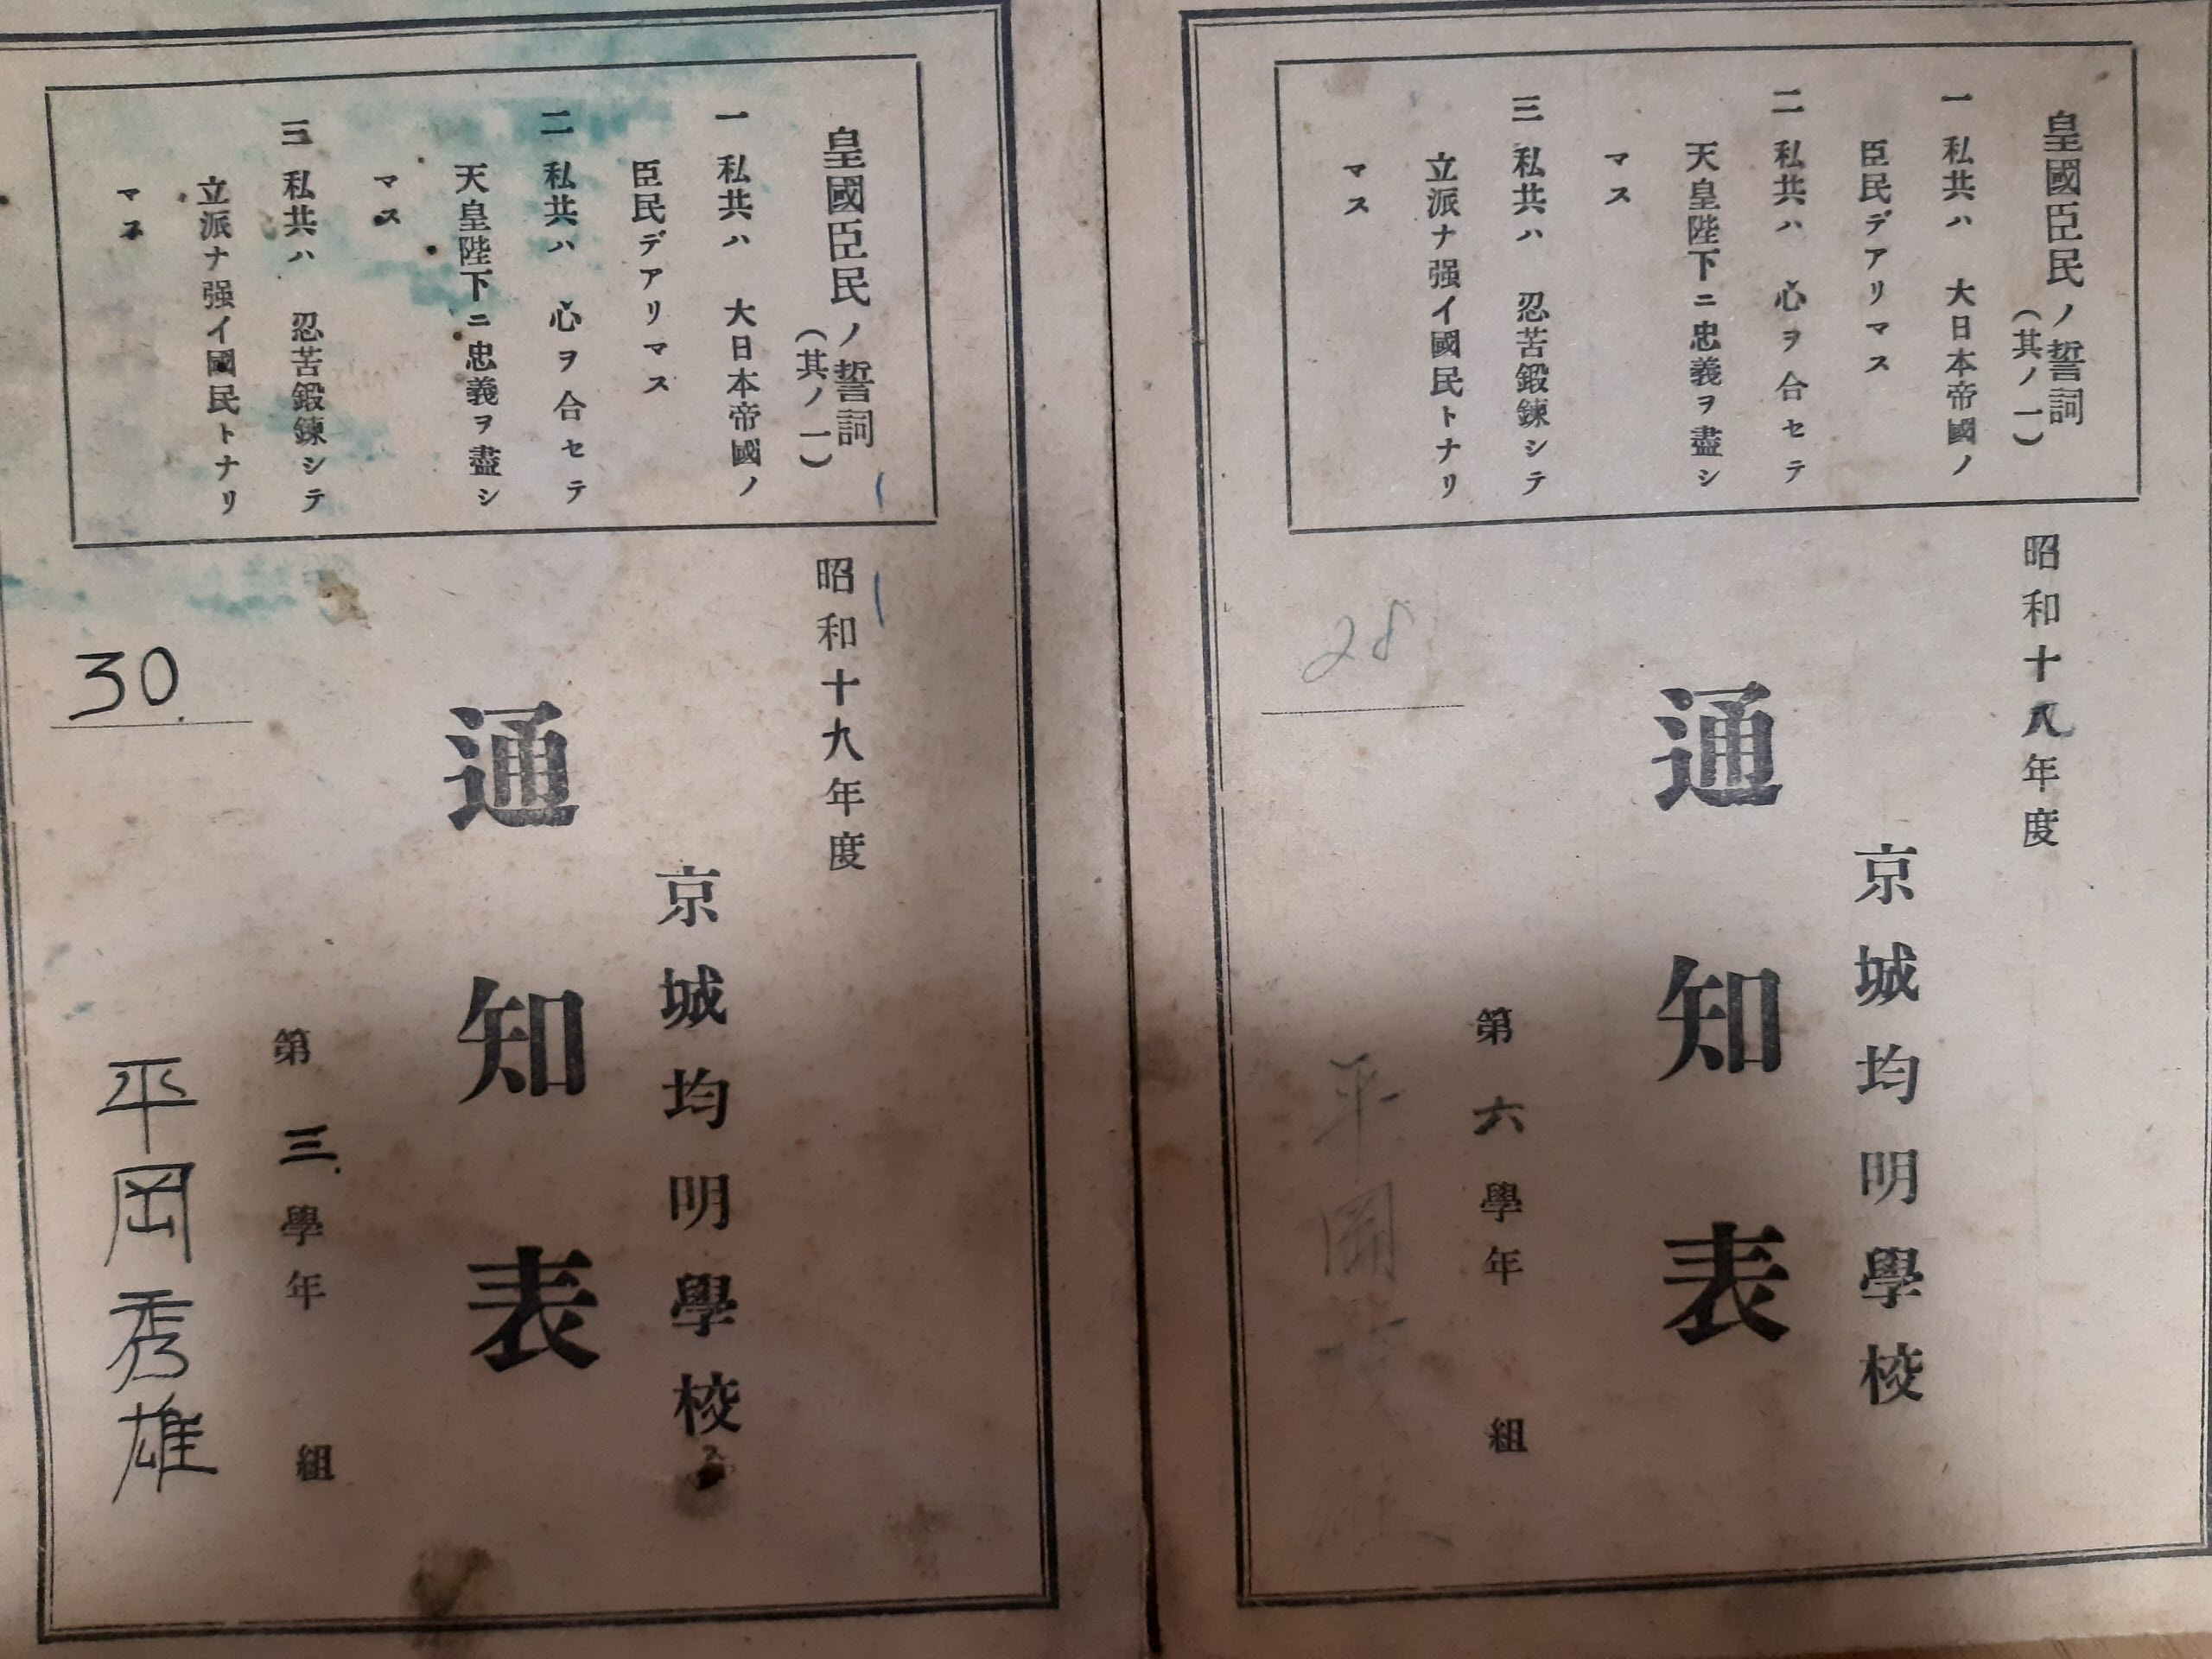 皇國臣民ノ誓詞
(其ノ一)
一 私共ハ 大日本帝國ノ
臣民デアリマス
二 私共ハ 心ヲ合セテ
天皇陛下ニ忠義ヲ盡シ
マス
三 私共ハ 忍苦鍛鍊シテ
立派ナ强イ國民トナリ
マス
昭和十八年度
京城均明學校
通知表
第六學年 組
28
平岡
皇國臣民ノ誓詞
(其ノ一)
一 私共ハ 大日本帝國ノ
臣民デアリマス
二 私共ハ 心ヲ合セテ
天皇陛下ニ忠義ヲ盡シ
マス
三 私共ハ 忍苦鍛鍊シテ
立派ナ强イ國民トナリ
マス
昭和十九年度
京城均明學校
通知表
第三學年 組
30
平岡秀雄